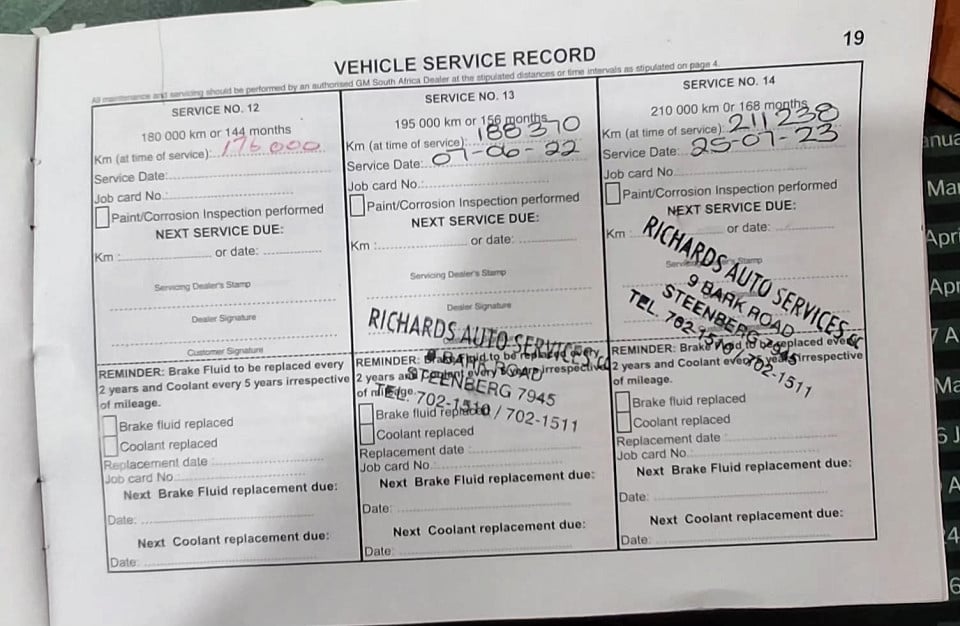 19
VEHICLE SERVICE RECORD
All maintenance and servicing should be performed by an authorised GM South Africa Dealer at the stipulated distances or time intervals as stipulated on page 4.
SERVICE NO. 12
180 000 km or 144 months
Km (at time of service): 176 000
Service Date:
Job card No.:
Paint/Corrosion Inspection performed
NEXT SERVICE DUE:
Km : or date:
Servicing Dealer's Stamp
Dealer Signature
Customer Signature
REMINDER: Brake Fluid to be replaced every
2 years and Coolant every 5 years irrespective
of mileage.
Brake fluid replaced
Coolant replaced
Replacement date :
Job card No.:
Next Brake Fluid replacement due:
Date:
Next Coolant replacement due:
Date:
SERVICE NO. 13
195 000 km or 156 months
Km (at time of service): 188 370
Service Date: 07-06-22
Job card No.:
Paint/Corrosion Inspection performed
NEXT SERVICE DUE:
Km : or date:
Servicing Dealer's Stamp
Dealer Signature
RICHARDS AUTO SERVICES cc
9 BARK ROAD
STEENBERG 7945
TEL. 702-1510 / 702-1511
REMINDER: Brake Fluid to be replaced every
2 years and Coolant every 5 years irrespective
of mileage.
Brake fluid replaced
Coolant replaced
Replacement date :
Job card No.:
Next Brake Fluid replacement due:
Date:
Next Coolant replacement due:
Date:
SERVICE NO. 14
210 000 km or 168 months
Km (at time of service): 211 238
Service Date: 25-07-23
Job card No.
Paint/Corrosion Inspection performed
NEXT SERVICE DUE:
Km : or date:
Servicing Dealer's Stamp
RICHARDS AUTO SERVICES cc
9 BARK ROAD
STEENBERG 7945
TEL. 702-1510 / 702-1511
REMINDER: Brake Fluid to be replaced every
2 years and Coolant every 5 years irrespective
of mileage.
Brake fluid replaced
Coolant replaced
Replacement date :
Job card No.:
Next Brake Fluid replacement due:
Date:
Next Coolant replacement due:
Date: